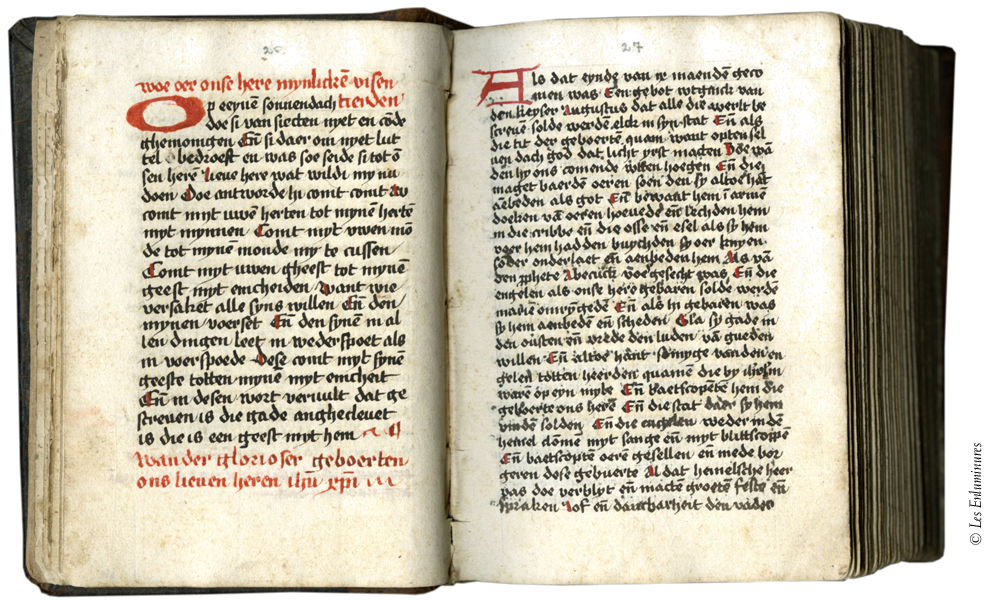 26
woe oer onse here mynlickē visen
Op eeynē sonnendach tierden
doe si van siecten nyet en cōde
ghemonigen Eñ si daer om nyet lut
tel bedroeft en was soe seide si tot ō
sen herē lieue here wat wildi my nu
doen Doe antworde hi comt comt
comt myt uwē herten tot mynē hertē
myt mynnen Comt myt uwen mō
de tot mynē monde my te cussen
Comt myt uwen gheest tot mynē
geest myt emcheiden want wie
versaket alle syns willen Eñ den
mynen voerset Eñ den synē in al
len dingen leet in wederspoet als
in voerspoede Dese comt myt synē
geeste totten mynē myt emcheit
Eñ in desen wort vervult dat ge
screuen is die gade angheclevet
is die is een geest myt hem
wan der glorioser geboerten
ons lieuen heren ihū xpī
27
Als dat eynde van ix maendē geco
men was Een gebot wtganck van
den keyser Augustus dat alle die werlt be
screue solde werdē elck in syn stat Eñ als
die tit der geboertē quam want opten sel
uen dach god dat licht yrst macten Doe wā
den hy ons comende wtten hoegen Eñ die
maget baerdē oeren soen den sy altoe hāt
aēbeden als got Eñ bewant hem in armē
doeken vā oeren hoeuede eñ lechden hem
in die cribbe eñ die osse eñ esel als sy hem
voer hem hadden buychden sy oer knyen
sōder onderlaet eñ aenbeden hem Als vā
den pphete Abecuck voe gesecht was Eñ die
engelen als onse herē gebaren solde werdē
mariē omrȳgedē Eñ als hi gebaren was
sy hem aenbedē eñ scheden Gla sy gade in
den ousten eñ vrede den luden vā gueden
willen Eñ altoe hant somyge van den en
gelen totten heerden quamē die by
warē op eyn myle Eñ baetscoptē hem die
geboerte ons herē Eñ die stat daer sy hem
vinden solden Eñ die engelen weder in dē
hemel clōmē myt sange eñ myt blitscoppē
Eñ baetscoptē oerē gesellen eñ mede bor
geren dose gebuerte Al dat hemelsche heer
was doe verblyt eñ mactē groetē feste eñ
spraken lof eñ dancbarheit den vader
© Les Enluminures